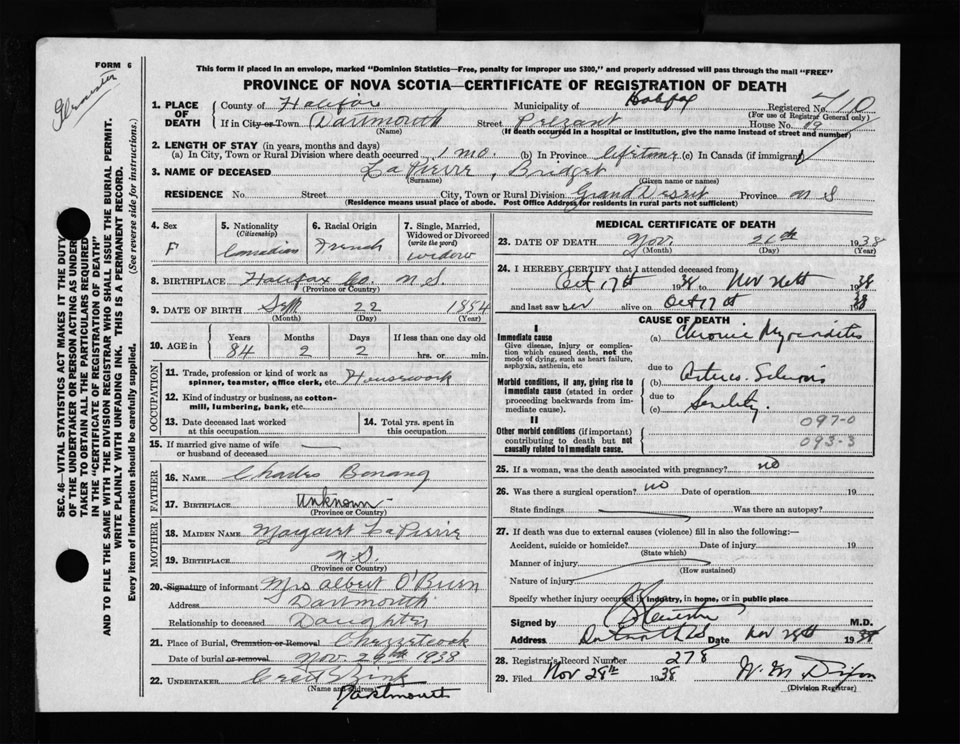 FORM 6
This form if placed in an envelope, marked "Dominion Statistics—Free, penalty for improper use $300," and properly addressed will pass through the mail "FREE"
PROVINCE OF NOVA SCOTIA—CERTIFICATE OF REGISTRATION OF DEATH
SEC. 46—VITAL STATISTICS ACT MAKES IT THE DUTY
OF THE UNDERTAKER OR PERSON ACTING AS UNDER
TAKER TO OBTAIN ALL THE PARTICULARS REQUIRED
IN THE "CERTIFICATE OF REGISTRATION OF DEATH"
AND TO FILE THE SAME WITH THE DIVISION REGISTRAR WHO SHALL ISSUE THE BURIAL PERMIT.
WRITE PLAINLY WITH UNFADING INK. THIS IS A PERMANENT RECORD.
Every item of information should be carefully supplied. (See reverse side for instructions.)
1. PLACE OF DEATH County of Halifax Municipality of Halifax Registered No. 710
(For use of Registrar General only)
If in City or Town Dartmouth Street House No. 89
(Name) (If death occurred in a hospital or institution, give the name instead of street and number)
2. LENGTH OF STAY (in years, months and days)
(a) In City, Town or Rural Division where death occurred 1 mo. (b) In Province lifetime (c) In Canada (if immigrant)
3. NAME OF DECEASED LaPierre, Bridget
(Surname) (Given name or names)
RESIDENCE No. Street City, Town or Rural Division Grand Desert Province N S
(Residence means usual place of abode. Post Office Address for residents in rural parts not sufficient)
4. Sex F
5. Nationality (Citizenship) Canadian
6. Racial Origin French
7. Single, Married, Widowed or Divorced (write the word) widow
8. BIRTHPLACE Halifax Co. N.S.
(Province or Country)
9. DATE OF BIRTH Sept 22 1854
(Month) (Day) (Year)
10. AGE in Years Months Days If less than one day old
84 2 2 hrs. or min.
OCCUPATION
11. Trade, profession or kind of work as spinner, teamster, office clerk, etc. Housework
12. Kind of industry or business, as cotton-mill, lumbering, bank, etc.
13. Date deceased last worked at this occupation
14. Total yrs. spent in this occupation
15. If married give name of wife or husband of deceased
FATHER
16. NAME Charles Bonang
17. BIRTHPLACE Unknown
(Province or Country)
MOTHER
18. MAIDEN NAME Margaret LaPierre
19. BIRTHPLACE N.S.
(Province or Country)
20. Signature of informant Mrs Albert O'Brien
Address Dartmouth
Relationship to deceased Daughter
21. Place of Burial, Cremation or Removal Chezzetcook
Date of burial or removal Nov. 29th 1938
22. UNDERTAKER
(Name and address) Dartmouth
MEDICAL CERTIFICATE OF DEATH
23. DATE OF DEATH Nov 26th 1938
(Month) (Day) (Year)
24. I HEREBY CERTIFY that I attended deceased from
Oct 17th 1938 to Nov 26th 1938
and last saw her alive on Oct 17th 1938
CAUSE OF DEATH
I
Immediate cause
Give disease, injury or complication which caused death, not the mode of dying, such as heart failure, asphyxia, asthenia, etc
(a) Chronic Myocarditis
due to
Morbid conditions, if any, giving rise to immediate cause (stated in order proceeding backwards from immediate cause).
(b) Arterio Sclerosis
due to
(c) Senility
II
Other morbid conditions (if important) contributing to death but not causally related to immediate cause.
097-0
093-3
25. If a woman, was the death associated with pregnancy? no
26. Was there a surgical operation? no Date of operation 19
State findings Was there an autopsy?
27. If death was due to external causes (violence) fill in also the following:—
Accident, suicide or homicide? Date of injury 19
(State which)
Manner of injury
(How sustained)
Nature of injury
Specify whether injury occurred in industry, in home, or in public place
Signed by M.D.
Address Date Nov 28th 1938
28. Registrar's Record Number 278
29. Filed Nov 28th 1938 W. M. Dixon
(Division Registrar)